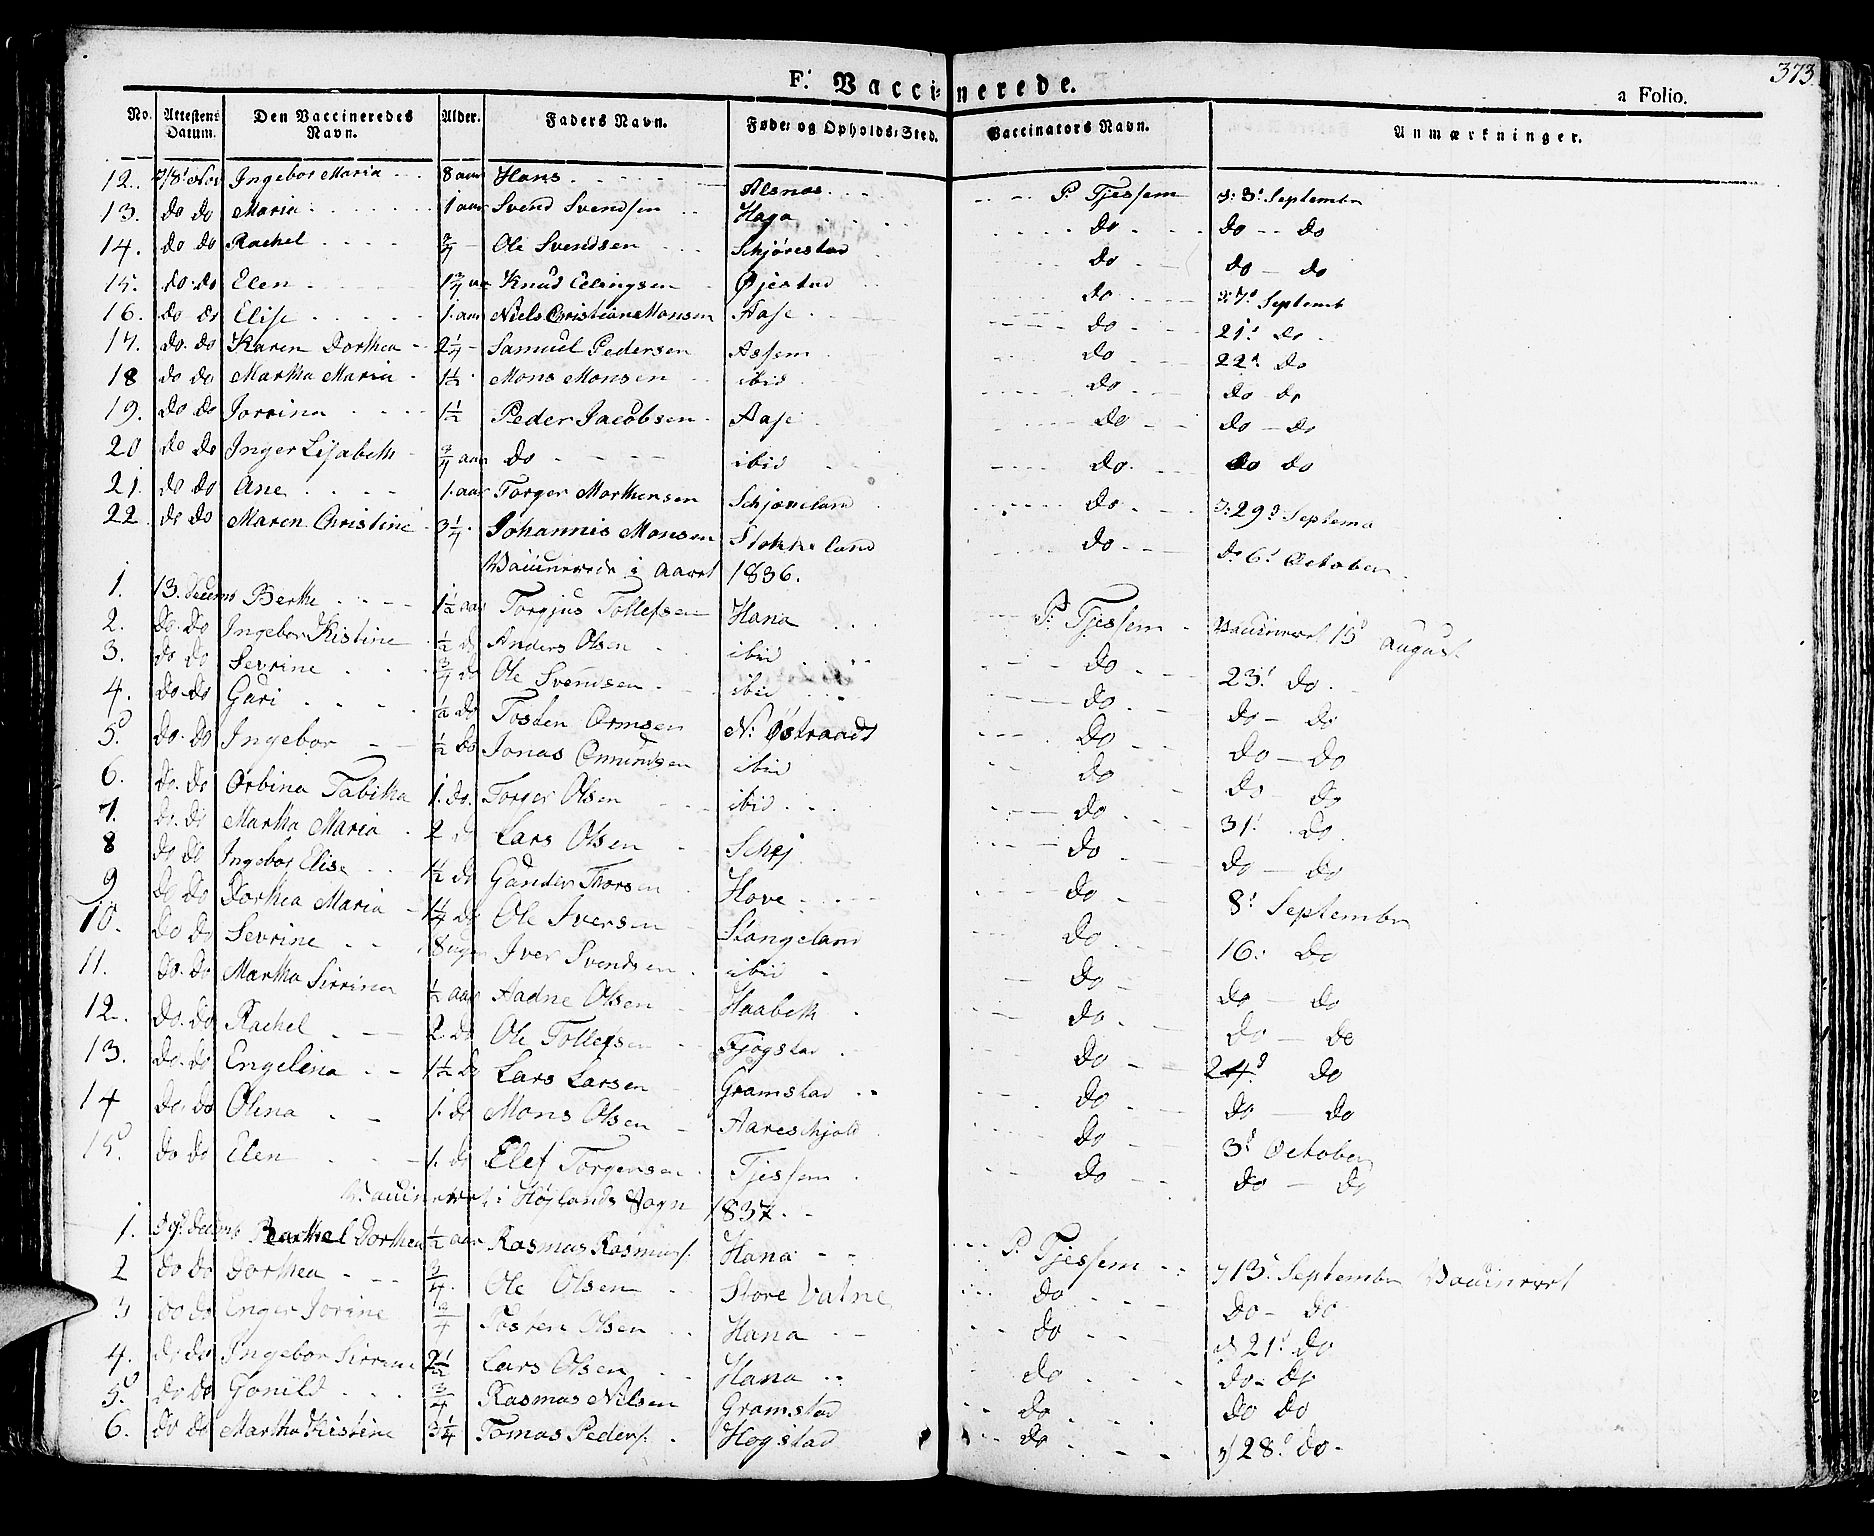 373
F. Vaccinerede.
a Folio.
No. Attestens Datum. Den Vaccineredes Navn. Alder. Faders Navn. Føde- og Opholds-Sted. Vaccinators Navn. Anmærkninger.
12. Ingebor Maria 8 aar Hans Alsnas P. Tjessem 3. September
13. do do Maria 1 aar Svend Svendsen Haga do do -- do
14. do do Rachel 3/4 Ole Svendsen Schjørestad do do - do
15. do do Elen 1 3/4 Knud Elingsen Øjestad do 7d Septemb
16. do do Elise 1. aar Niels Christian Monsen Aase do 21d do
17. do. do Karen Dorthea 2 1/4 Samuel Pedersen Assem do 22d do
18 do do Martha Maria 1 1/2 Mons Monsen ibid do do do
19. do do Jorrina 1 1/2 Peder Jacobsen Aase do do - do
20 do do Inger Lisabeth 3/4 aar do ibid do do do
21. do do Ane 1. aar Torger Morthensen Schjæveland do 29d Septemb
22. do do Maren Christine 3 1/4 Johannis Monsen Stokkeland do 6d October
Vaccinerede i Aaret 1836.
1. 13. Decemb Berthe 1 1/2 aar Torgjus Tollefsen Hana P. Tjessem Vaccineret 15d August
2. do. do Ingebor Kistine 1/2 do Anders Olsen ibid do 23d do
3. do do Sevrine 3/4 do Ole Svendsen ibid do do - do
4. do. do Guri 1/2 do Tosten Ormsen N: Østraadt do do - do
5. do. do Ingebor 1/2 do Jonas Omundsen ibid do do - do
6. do. do Orbina Tabitha 1. do. Torger Olsen ibid do 31d do
7. do. do Martha Maria 2 do Lars Olsen Schej do do - do
8 do do Ingebor Elise 1 1/2 do Gunder Thorsen Hove do 8d September
9 do do Dorthea Maria 1 1/4 do Ole Iversen Stangeland do 16: do
10. do do Sevrine 18 uger Iver Svendsen ibid do do - do
11. do. do Martha Sirrina 1/2 aar Aadne Olsen Haabeth do do - do
12. do. do Rachel 2 do Ole Tollefsen Fjogstad do 24d do
13. do. do Engelina 1 1/2 do Lars Larsen Gramstad do do - do
14 do. do Olina 1. do Mons Olsen Aareschjold do 3d October
15. do do Elen 1. do Elef Torgersen Tjessem do do - do
Vaccineret i Højlands Sogn 1837.
1. Decemb Rachel Dorthea 1/2 aar Rasmus Rasmus. Hana P. Tjessem 13d September Vaccineret
2 do do Dorthea 3/4 Ole Olsen Store Vatne do do - do
3 do do Enger Jorine 3/4 Tosten Olsen Hana do 21d do
4. do do Ingebor Sirrine 2 1/2 Lars Olsen Hana do do - do
5. do do Gonild 3/4 Rasmus Nilsen Gramstad do do do
6. do do Martha Kistine 3 1/4 Tomas Peders. Hogstad do 28d do